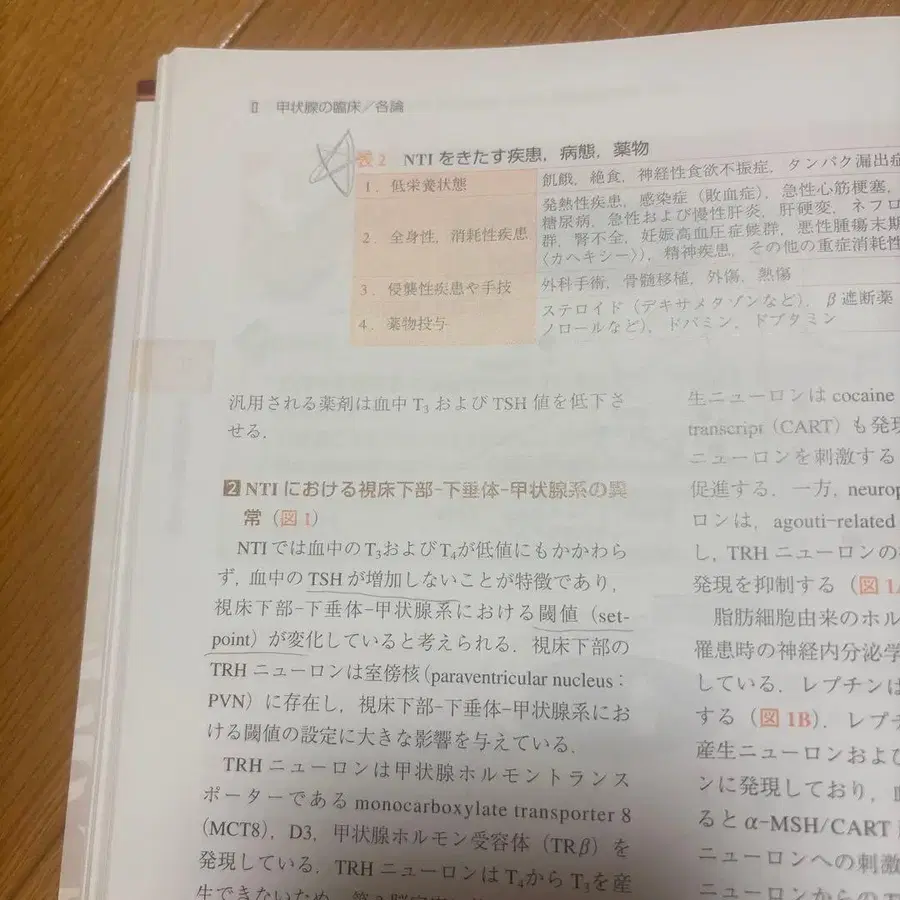 Ⅱ 甲状腺の臨床／各論
表2 NTIをきたす疾患，病態，薬物
1．低栄養状態
飢餓，絶食，神経性食欲不振症，タンパク漏出症
2．全身性，消耗性疾患
発熱性疾患，感染症（敗血症），急性心筋梗塞，
糖尿病，急性および慢性肝炎，肝硬変，ネフロ
群，腎不全，妊娠高血圧症候群，悪性腫瘍末期
〈カヘキシー〉），精神疾患，その他の重症消耗性
3．侵襲性疾患や手技
外科手術，骨髄移植，外傷，熱傷
4．薬物投与
ステロイド（デキサメタゾンなど），β遮断薬
ノロールなど），ドパミン，ドブタミン
汎用される薬剤は血中T₃およびTSH値を低下さ
せる．
2 NTIにおける視床下部-下垂体-甲状腺系の異
常（図1）
NTIでは血中のT₃およびT₄が低値にもかかわら
ず，血中のTSHが増加しないことが特徴であり，
視床下部-下垂体-甲状腺系における閾値（set-
point）が変化していると考えられる．視床下部の
TRHニューロンは室傍核（paraventricular nucleus：
PVN）に存在し，視床下部-下垂体-甲状腺系にお
ける閾値の設定に大きな影響を与えている．
TRHニューロンは甲状腺ホルモントランス
ポーターであるmonocarboxylate transporter 8
（MCT8），D3，甲状腺ホルモン受容体（TRβ）を
発現している．TRHニューロンはT₄からT₃を産
生できないため，第3脳室
生ニューロンは cocaine
transcript（CART）も発現
ニューロンを刺激する
促進する．一方，neurop
ロンは，agouti-related
し，TRHニューロンの
発現を抑制する（図1A
脂肪細胞由来のホル
罹患時の神経内分泌学
している．レプチンは
する（図1B）．レプチ
産生ニューロンおよび
ンに発現しており，
るとα-MSH/CART
ニューロンへの刺激
ニューロンからの